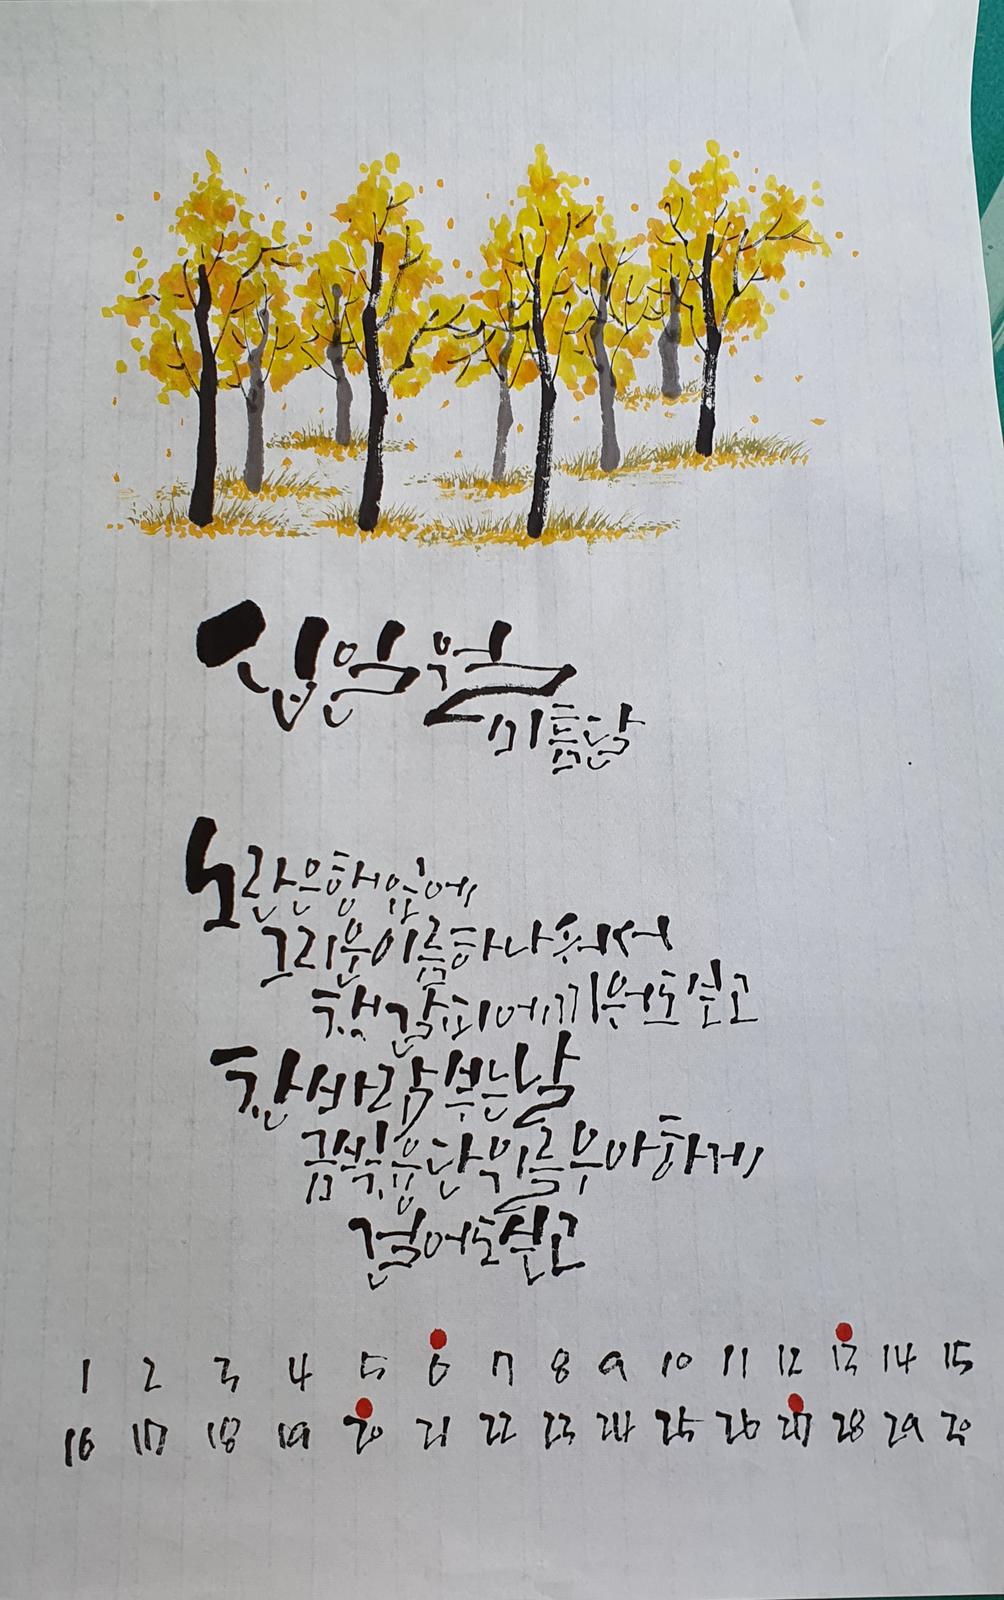 십일월
미틈달
노란은행잎에
그리운이름하나
책갈피에끼워
찬바람부는날
금빛융단위를우아하게
걸어
1 2 3 4 5 6 7 8 9 10 11 12 13 14 15
16 17 18 19 20 21 22 23 24 25 26 27 28 29 30